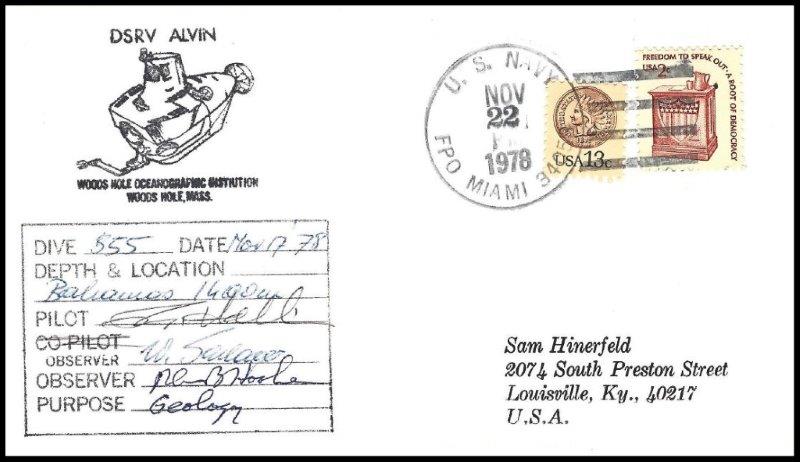 DSRV ALVIN
WOODS HOLE OCEANOGRAPHIC INSTITUTION
WOODS HOLE, MASS.
U. S. NAVY
NOV
22
1978
FPO MIAMI 340
USA 13c
FREEDOM TO SPEAK OUT · A ROOT OF DEMOCRACY
USA 2c
DIVE 555 DATE Nov 17 '78
DEPTH & LOCATION
Bahamas
PILOT
CO-PILOT
OBSERVER
OBSERVER
PURPOSE Geology
Sam Hinerfeld
2074 South Preston Street
Louisville, Ky., 40217
U.S.A.